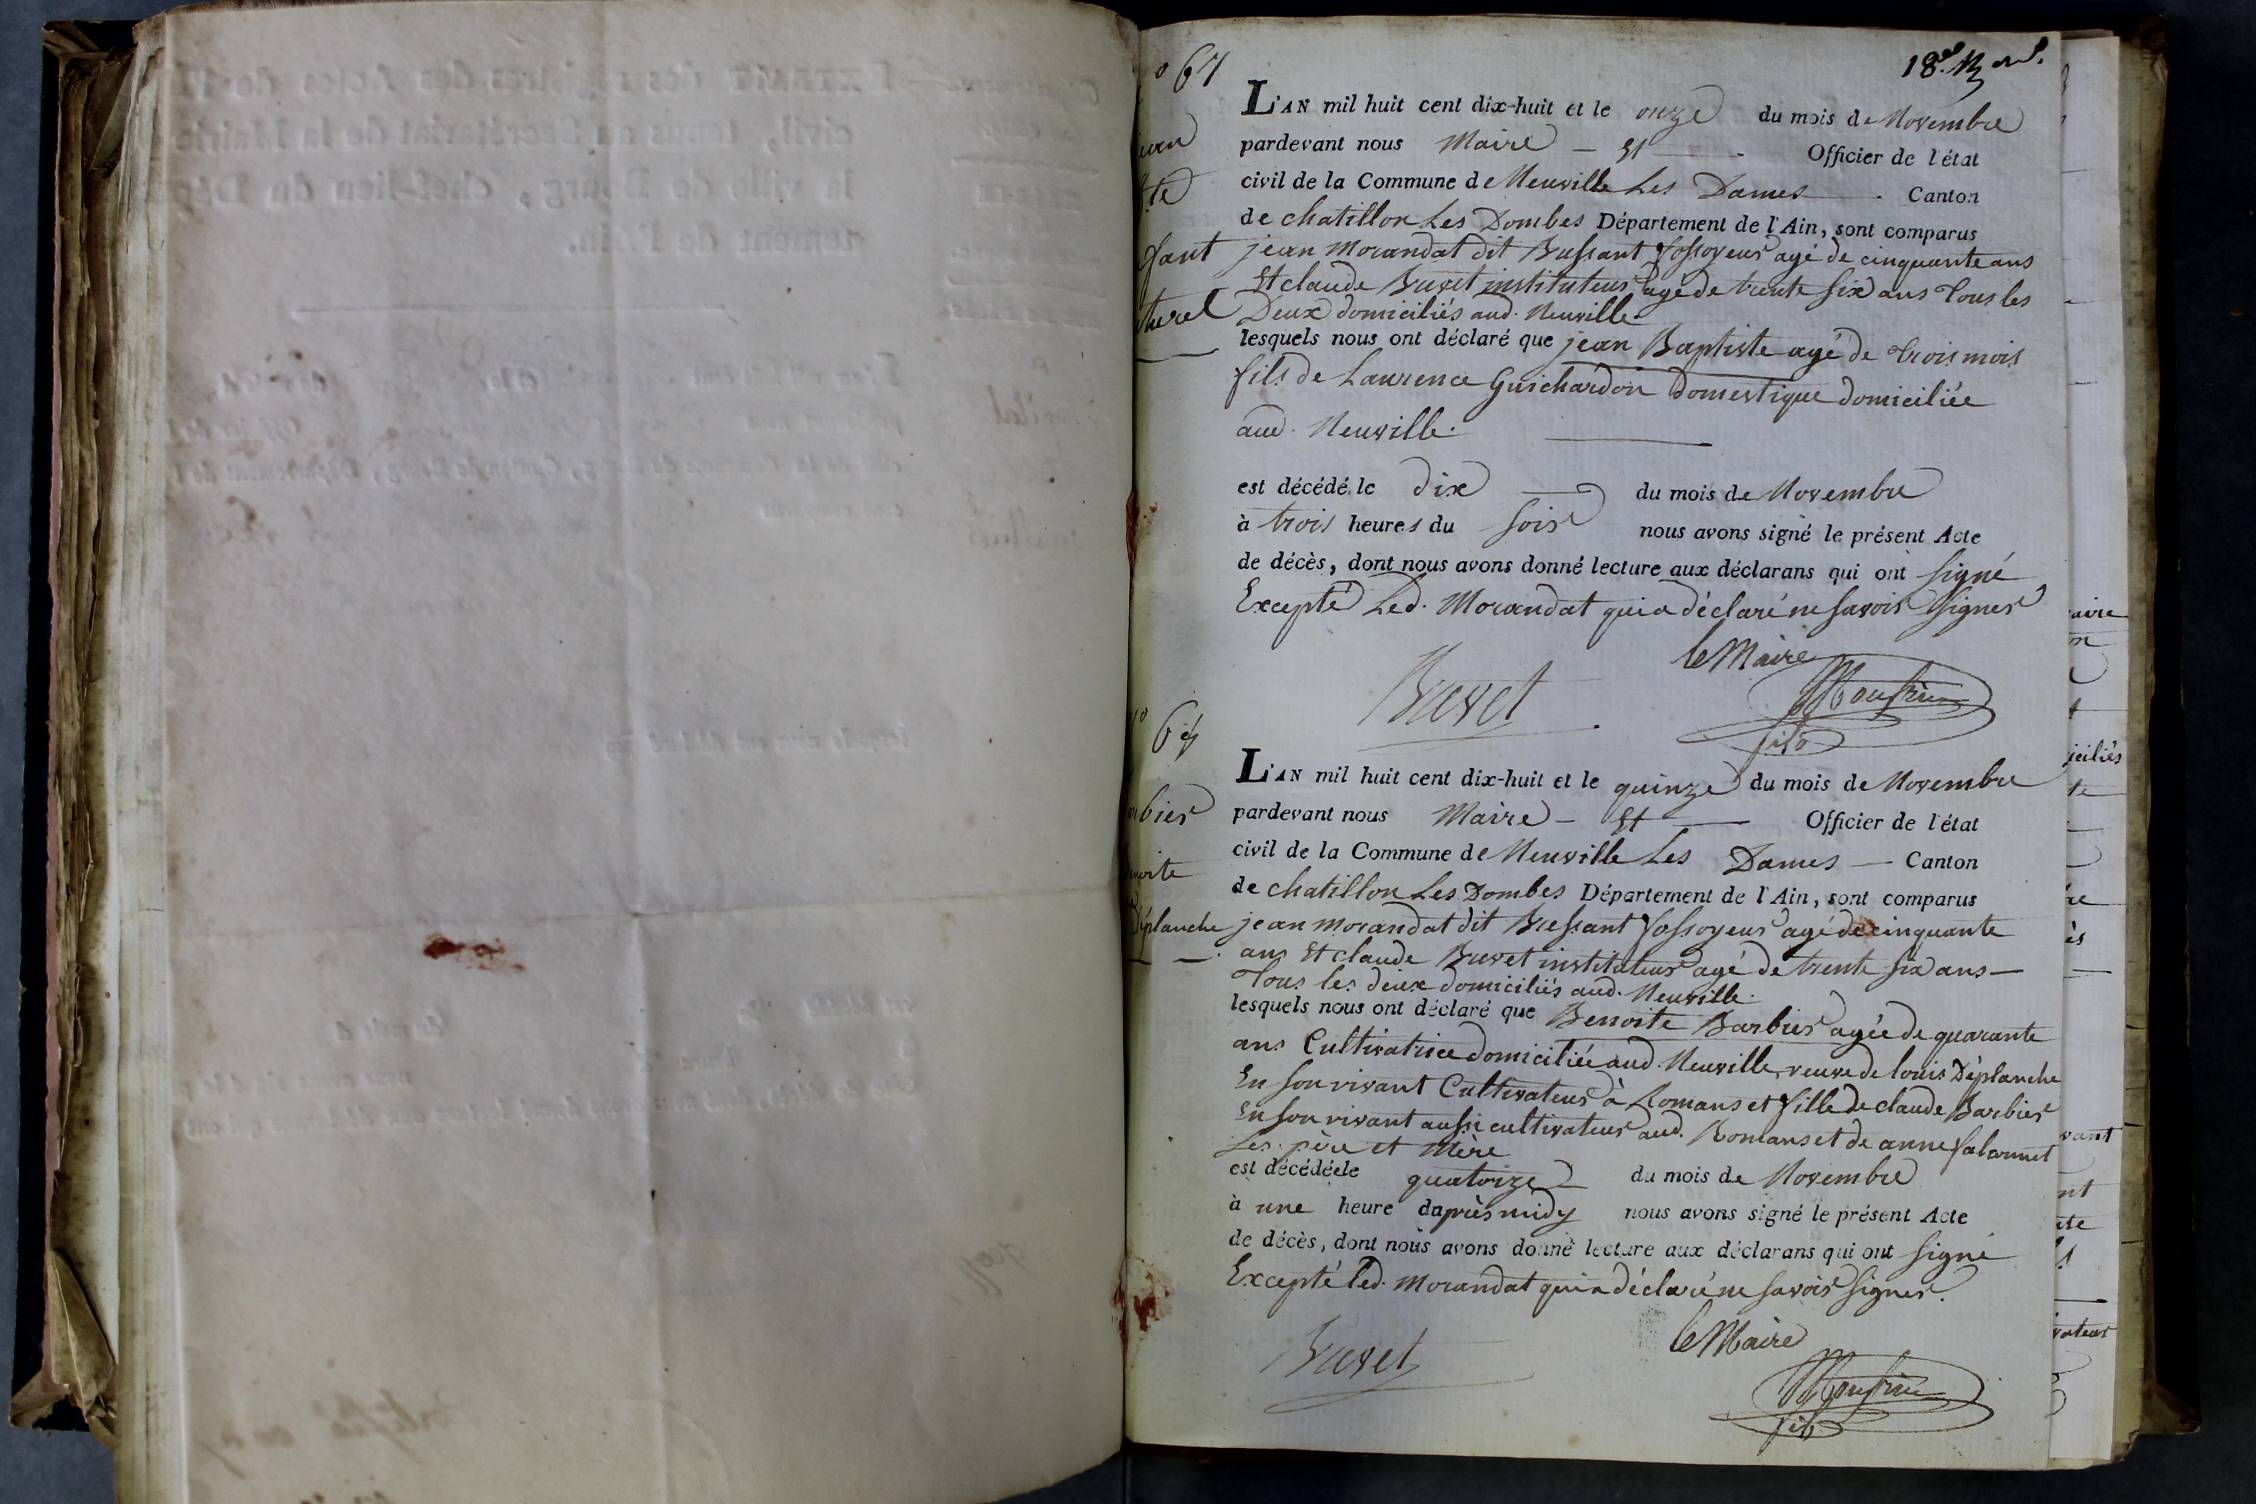 18e. 
o 67
L'AN mil huit cent dix-huit et le onze du mois de Novembre
pardevant nous Maire - Et - Officier de l'état
civil de la Commune de Neuville Les Dames - Canton
de chatillon Les Dombes Département de l'Ain, sont comparus
jean Morandat dit Bressant fossoyeur agé de cinquante ans
Et claude Buvet instituteur agé de trente six ans Tous les
Deux domiciliés aud. Neuville
lesquels nous ont déclaré que jean Baptiste agé de trois mois
fils de Laurence Guichardon domestique domiciliée
aud. Neuville.
est décédé le dix du mois de Novembre
à trois heures du soir nous avons signé le présent Acte
de décès, dont nous avons donné lecture aux déclarans qui ont signé
Excepté Led. Morandat qui a déclaré ne savoir signer
le Maire
Buvet
fils
ean
te
fant
turel
o 67
L'AN mil huit cent dix-huit et le quinze du mois de Novembre
pardevant nous Maire - Et - Officier de l'état
civil de la Commune de Neuville Les Dames - Canton
de chatillon Les Dombes Département de l'Ain, sont comparus
jean Morandat dit Bressant fossoyeur agé de cinquante
ans Et claude Buvet instituteur agé de trente six ans -
Tous les deux domiciliés aud. Neuville.
lesquels nous ont déclaré que Benoite Barbier agée de quarante
ans Cultivatrice domiciliée aud. Neuville, veuve de louis Déplanche
En son vivant Cultivateur à Romans et fille de claude Barbier
En son vivant aussi cultivateur aud. Romans et de anne falconnet
Les père et Mère
est décédée le quatorze du mois de Novembre
à une heure daprès midy nous avons signé le présent Acte
de décès, dont nous avons donné lecture aux déclarans qui ont signé
Excepté led. Morandat qui a déclaré ne savoir signer.
le Maire
Buvet
fils
bier
noite
Déplanche